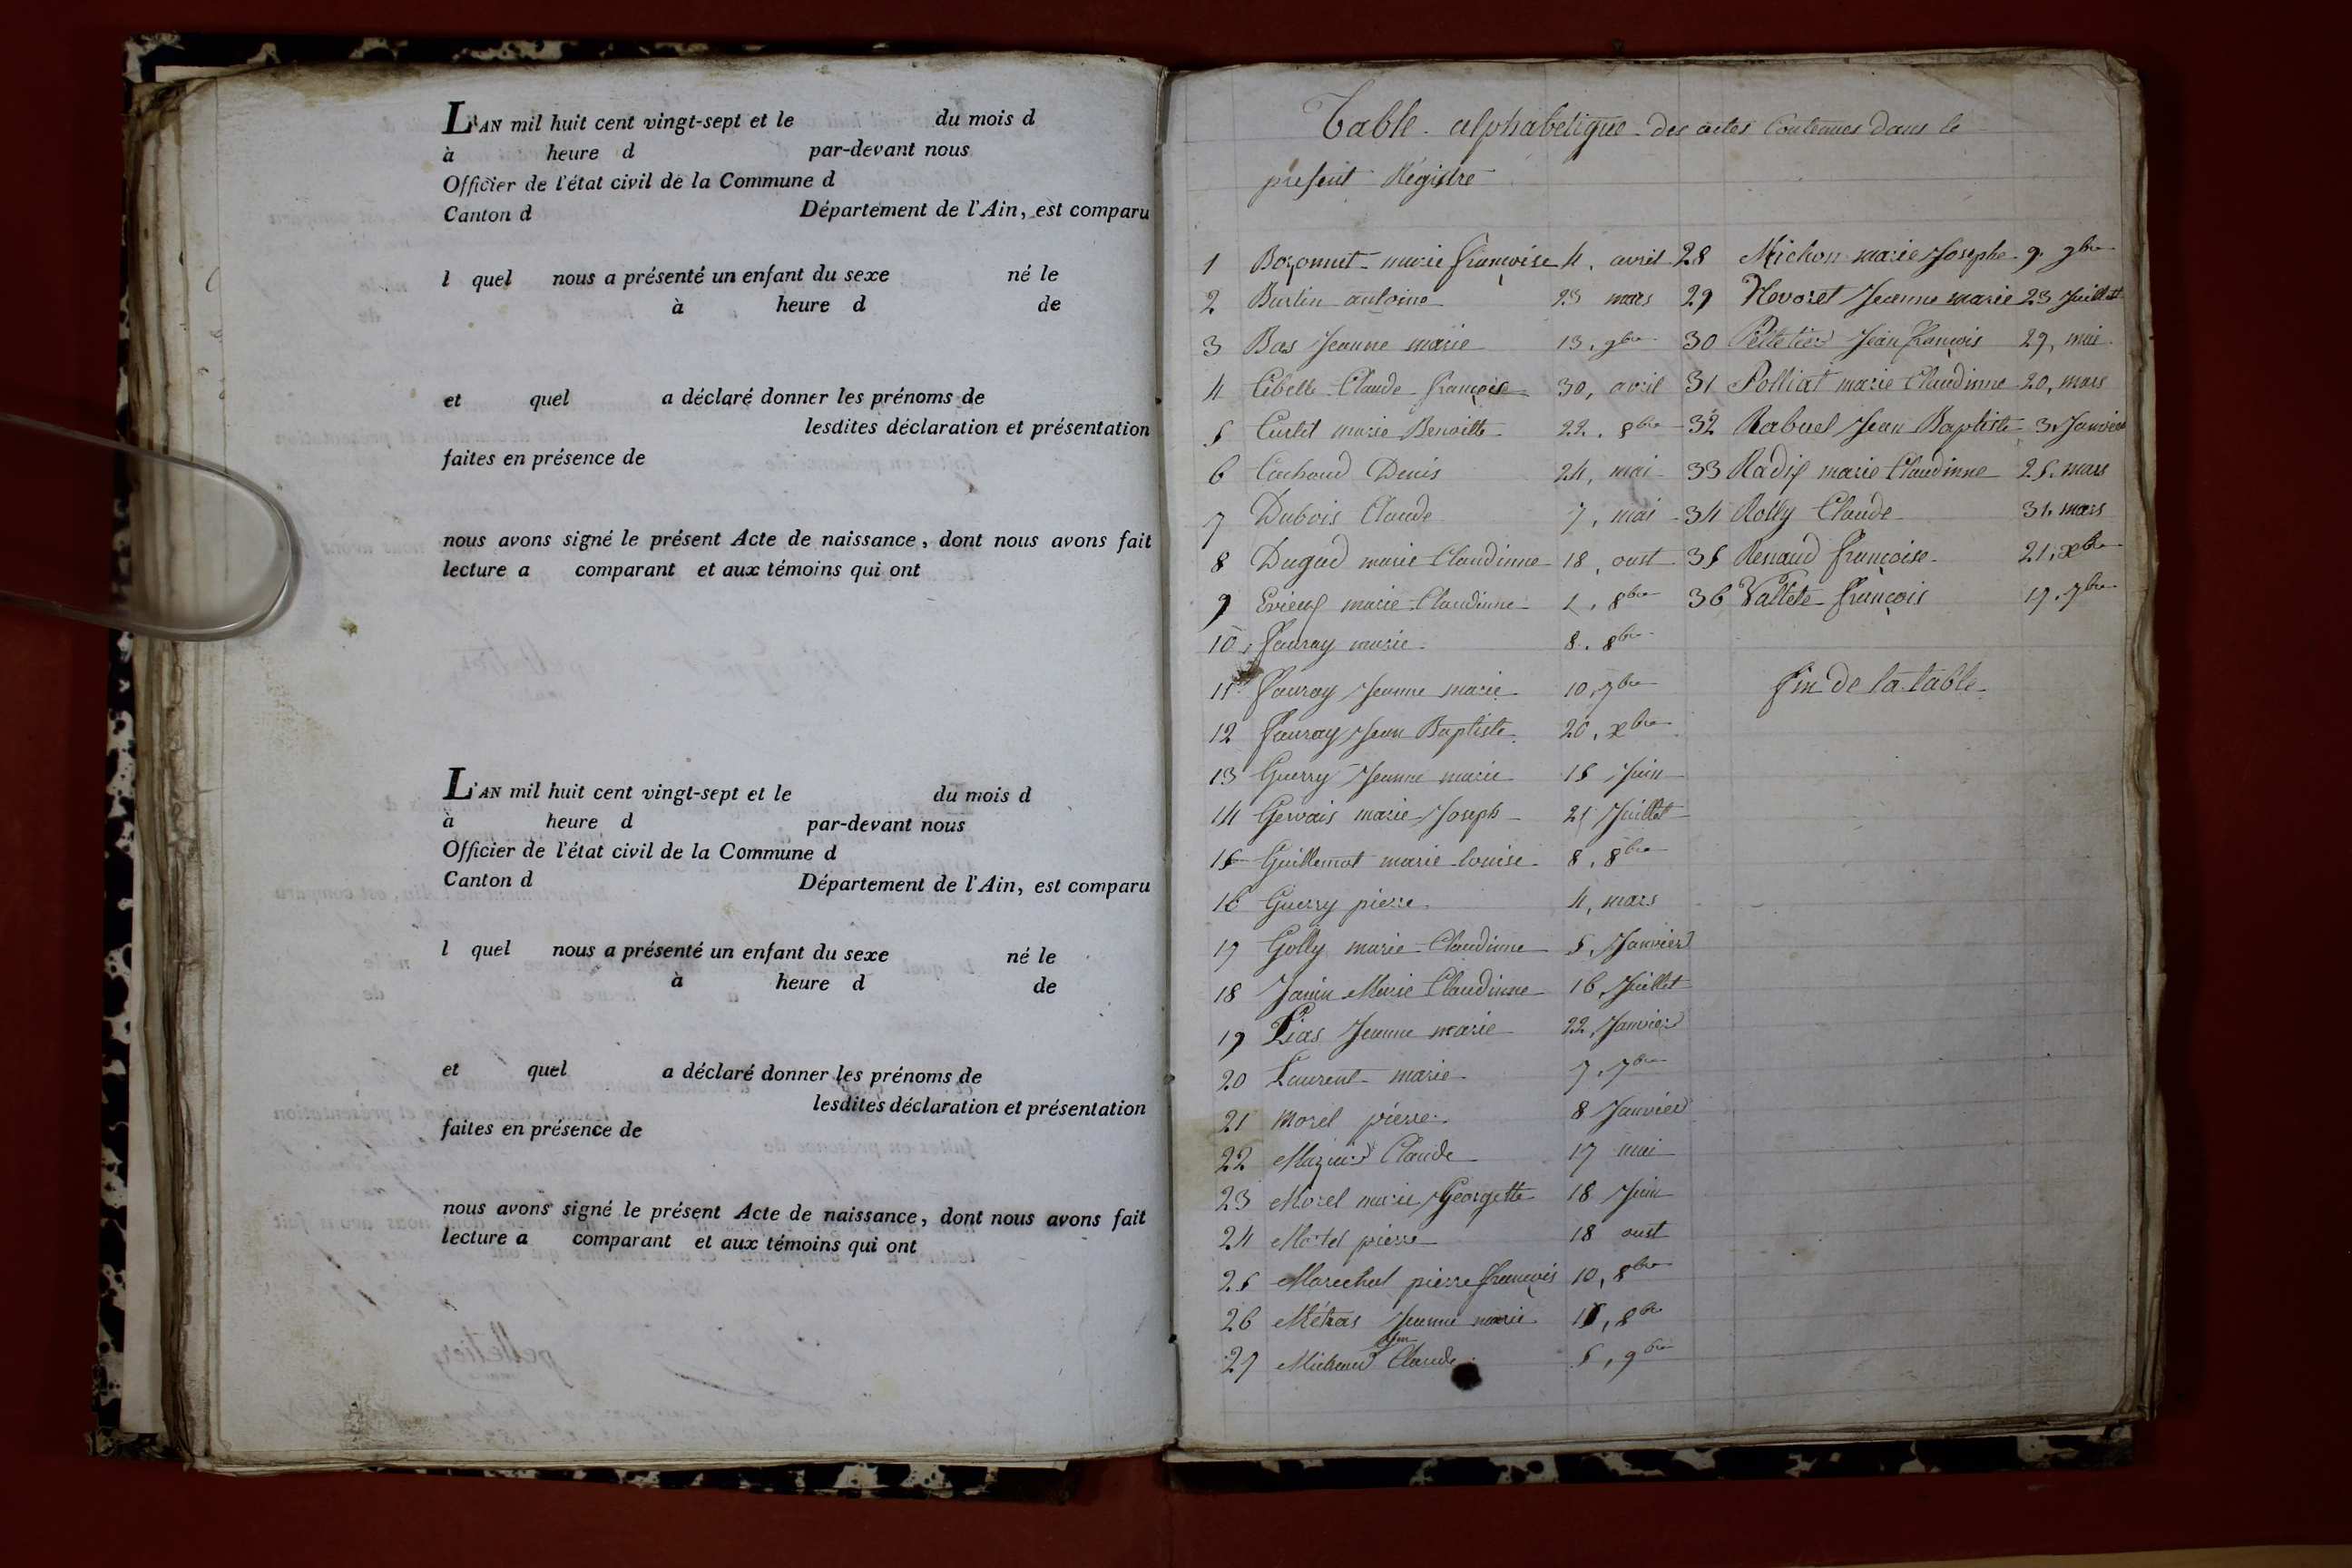 L'AN mil huit cent vingt-sept et le du mois d
à heure d par-devant nous
Officier de l'état civil de la Commune d
Canton d Département de l'Ain, est comparu
l quel nous a présenté un enfant du sexe né le
à heure d de
et quel a déclaré donner les prénoms de
lesdites déclaration et présentation
faites en présence de
nous avons signé le présent Acte de naissance, dont nous avons fait
lecture a comparant et aux témoins qui ont
L'AN mil huit cent vingt-sept et le du mois d
à heure d par-devant nous
Officier de l'état civil de la Commune d
Canton d Département de l'Ain, est comparu
l quel nous a présenté un enfant du sexe né le
à heure d de
et quel a déclaré donner les prénoms de
lesdites déclaration et présentation
faites en présence de
nous avons signé le présent Acte de naissance, dont nous avons fait
lecture a comparant et aux témoins qui ont
Table alphabetique des actes Contenues dans le
present Régistre
1 Bozonnet marie françoise 4, avril
2 Burlin antoine 23 mars
3 Bas Jeanne marie 13, 9bre
4 Cibelle Claude françois 30, avril
5 Curlet marie Benoitte 22, 8bre
6 Cachoud Denis 24, mai
7 Dubois Claude 7, mai
8 Dugad marie Claudinne 18, oust
9 marie Claudinne 1, 8bre
10 fauray marie 8, 8bre
11 fauray Jeanne marie 10, 7bre
12 fauray Jean Baptiste 20, xbre
13 Guerry Jeanne marie 15 Juin
14 Gervais marie Joseph 21 Juillet
15 Guillemot marie louise 8, 8bre
16 Guerry pierre 4, mars
17 Golly marie Claudinne 5, Janvier
18 Janin Marie Claudinne 16, Juillet
19 Lias Jeanne marie 22, Janvier
20 Laurent marie 7, 7bre
21 Morel pierre 8 Janvier
22 Claude 17 mai
23 Morel marie Georgette 18 Juin
24 pierre 18 oust
25 Marechal pierre françois 10, 8bre
26 Métras Jeanne marie 8bre
27 Michaud Claude 5, 9bre
28 Michon marie Josephe 9, 9bre
29 Nevoret Jeanne marie 23 Juillet
30 Pelletier Jean françois 29, mai
31 Polliat marie Claudinne 20, mars
32 Rabuel Jean Baptiste 3, Janvier
33 Radix marie Claudinne 25, mars
34 Rolly Claude 31, mars
35 Renaud françoise 21, xbre
36 Vallete françois 17, 7bre
fin de la table